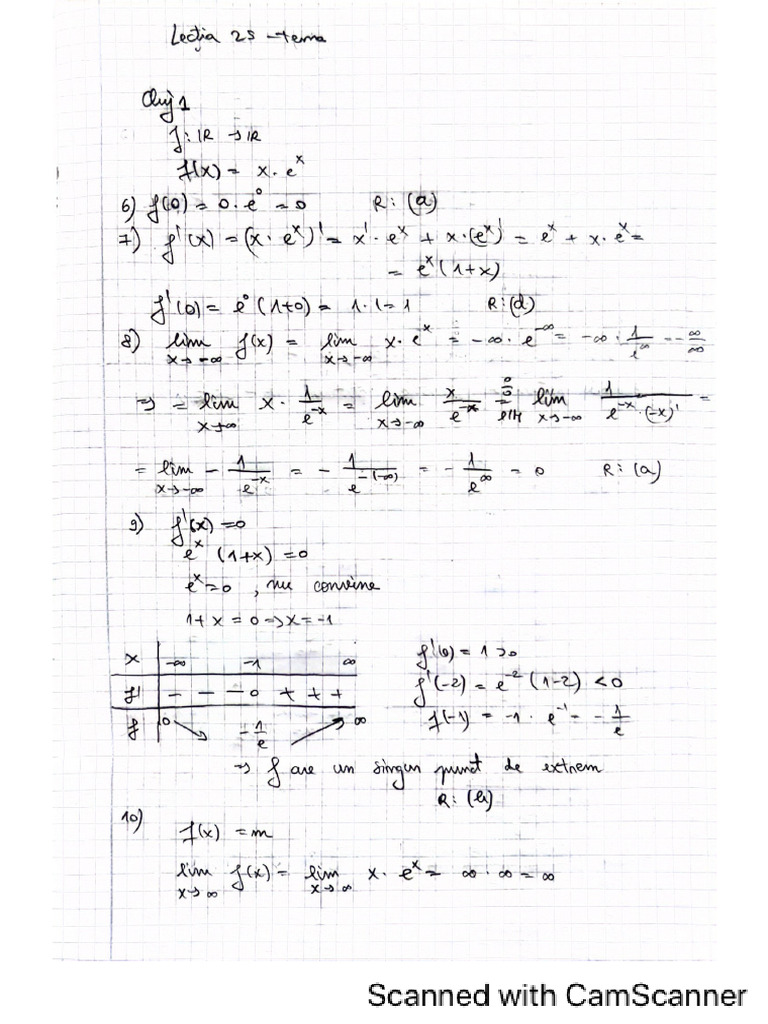 Lecția 25 - tema
Cluj 1
f: ℝ → ℝ
f(x) = x · e^x
6) f(0) = 0 · e^0 = 0 R: (a)
7) f'(x) = (x · e^x)' = x' · e^x + x · (e^x)' = e^x + x · e^x =
= e^x (1+x)
f'(0) = e^0 (1+0) = 1 · 1 = 1 R: (d)
8) lim x→-∞ f(x) = lim x→-∞ x · e^x = -∞ · e^-∞ = -∞ · 1/e^∞ = -∞/∞
⇒ = lim x→∞ x · 1/e^-x = lim x→-∞ x/e^-x = lim x→-∞ 1/(e^-x · (-x)') =
= lim x→-∞ - 1/e^-x = - 1/e^-(-∞) = - 1/e^∞ = 0 R: (a)
9) f'(x) = 0
e^x (1+x) = 0
e^x = 0 , nu convine
1 + x = 0 ⇒ x = -1
x | -∞ -1 ∞ f'(0) = 1 > 0
f' | - - - 0 + + + f'(-2) = e^-2 (1-2) < 0
f | 0 ↘ -1/e ↗ ∞ f(-1) = -1 · e^-1 = - 1/e
⇒ f are un singur punct de extrem
R: (b)
10) f(x) = m
lim x→∞ f(x) = lim x→∞ x · e^x = ∞ · ∞ = ∞
Scanned with CamScanner